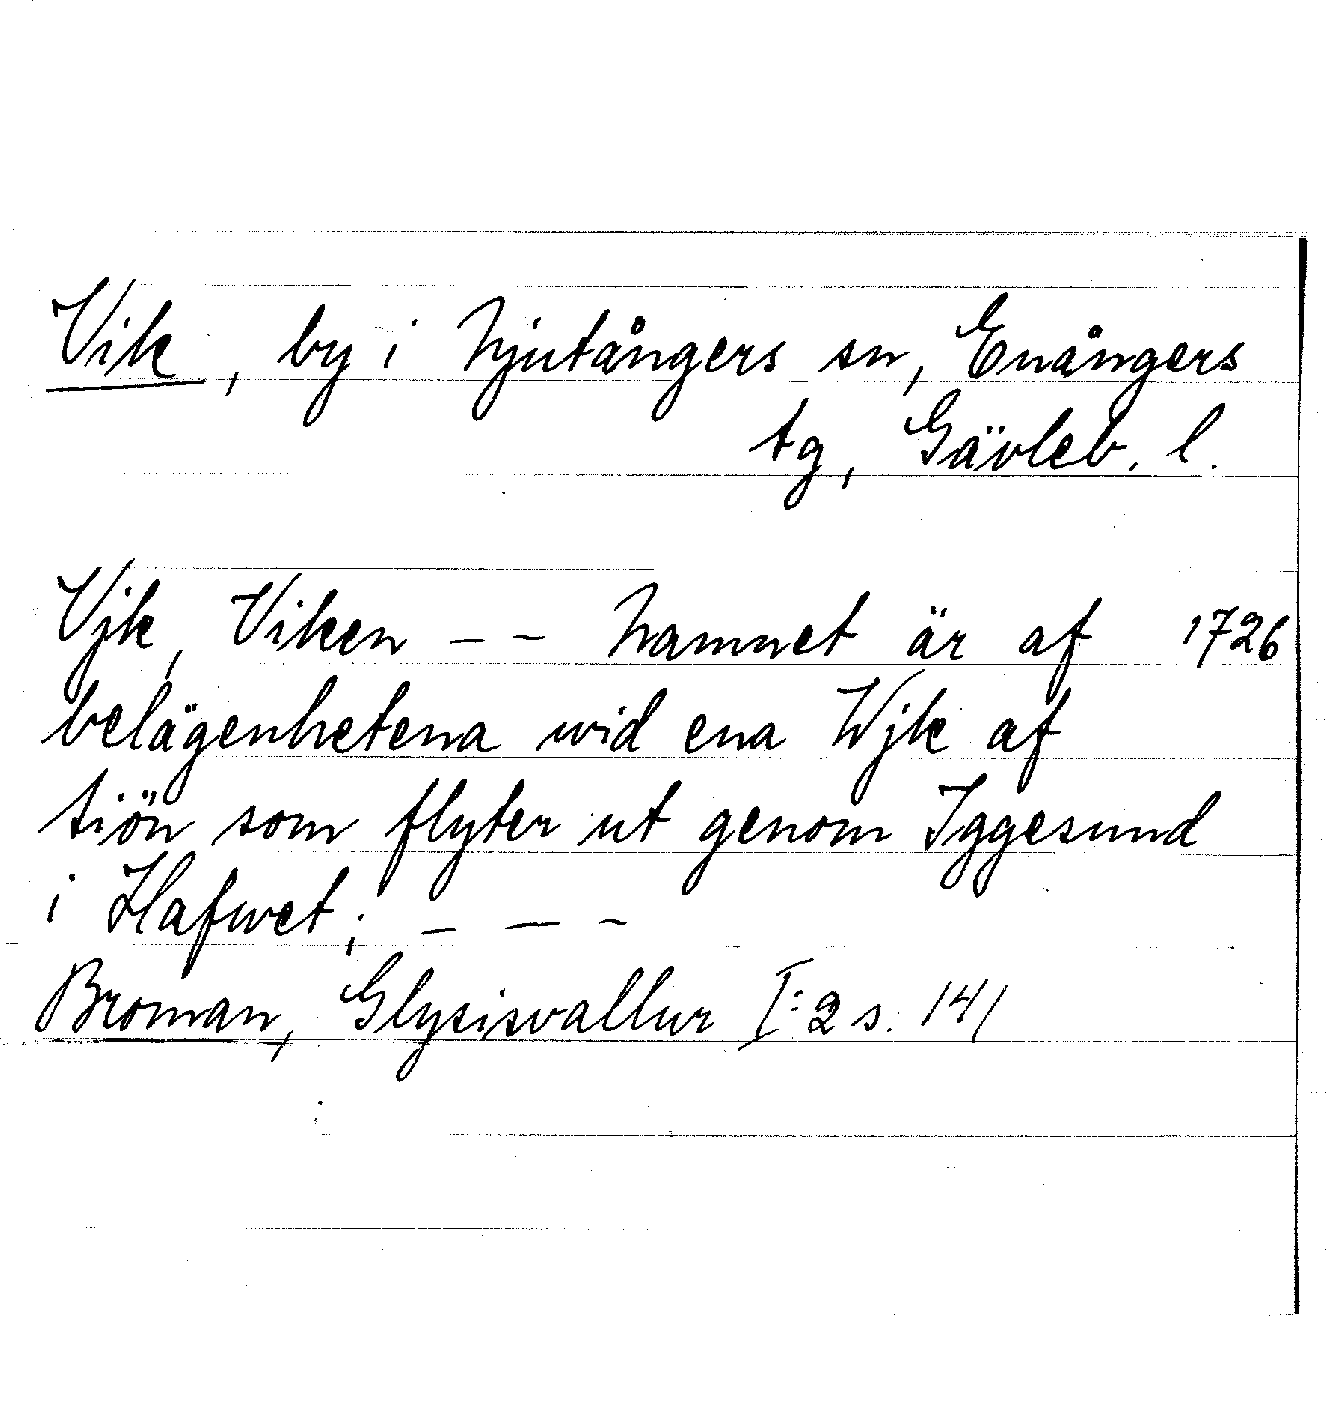 Vik, by i Njutångers sn, Enångers
tg, Gävleb. l.
Vjk, Viken – – Namnet är af 1726
belägenhetena wid ena Wjk af
tiön som flyter ut genom Iggesund
i Hafwet; – – –
Broman, Glysisvallur I:2 s. 141